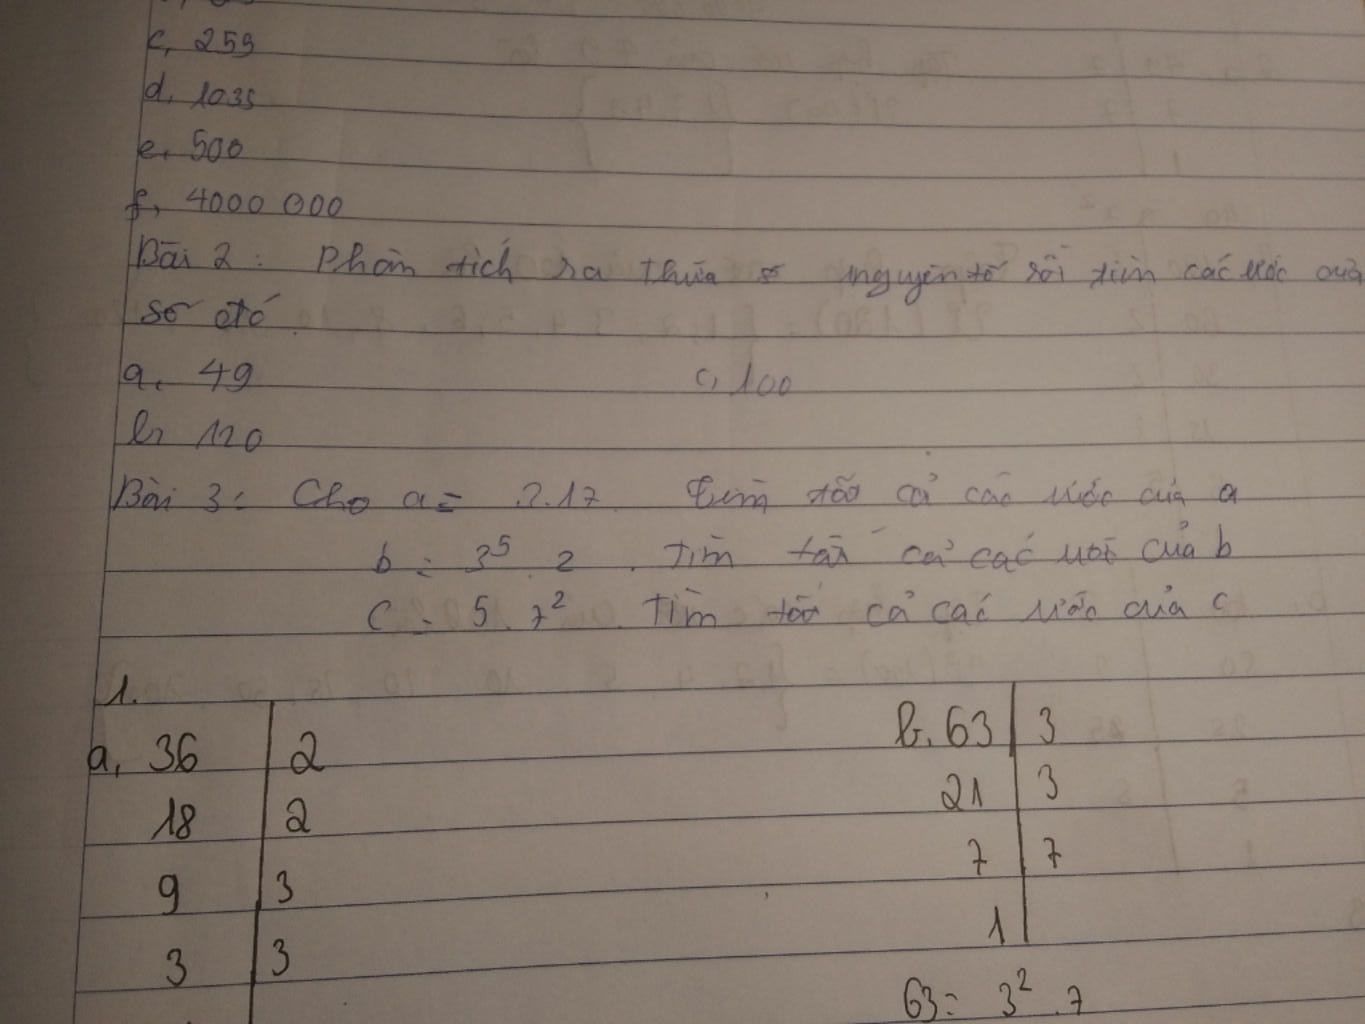 c, 259
d, 1035
e, 500
f, 4000 000
Bài 2: Phân tích ra thừa số nguyên tố rồi tìm các ước của
số đó.
a, 49 c, 100
b, 120
Bài 3: Cho a = 7.17. Tìm tất cả các ước của a
b = 3⁵.2. Tìm tất cả các ước của b
C = 5.7². Tìm tất cả các ước của c
1.
a, 36 | 2 b, 63 | 3
18 | 2 21 | 3
9 | 3 7 | 7
3 | 3 1
63 = 3².7